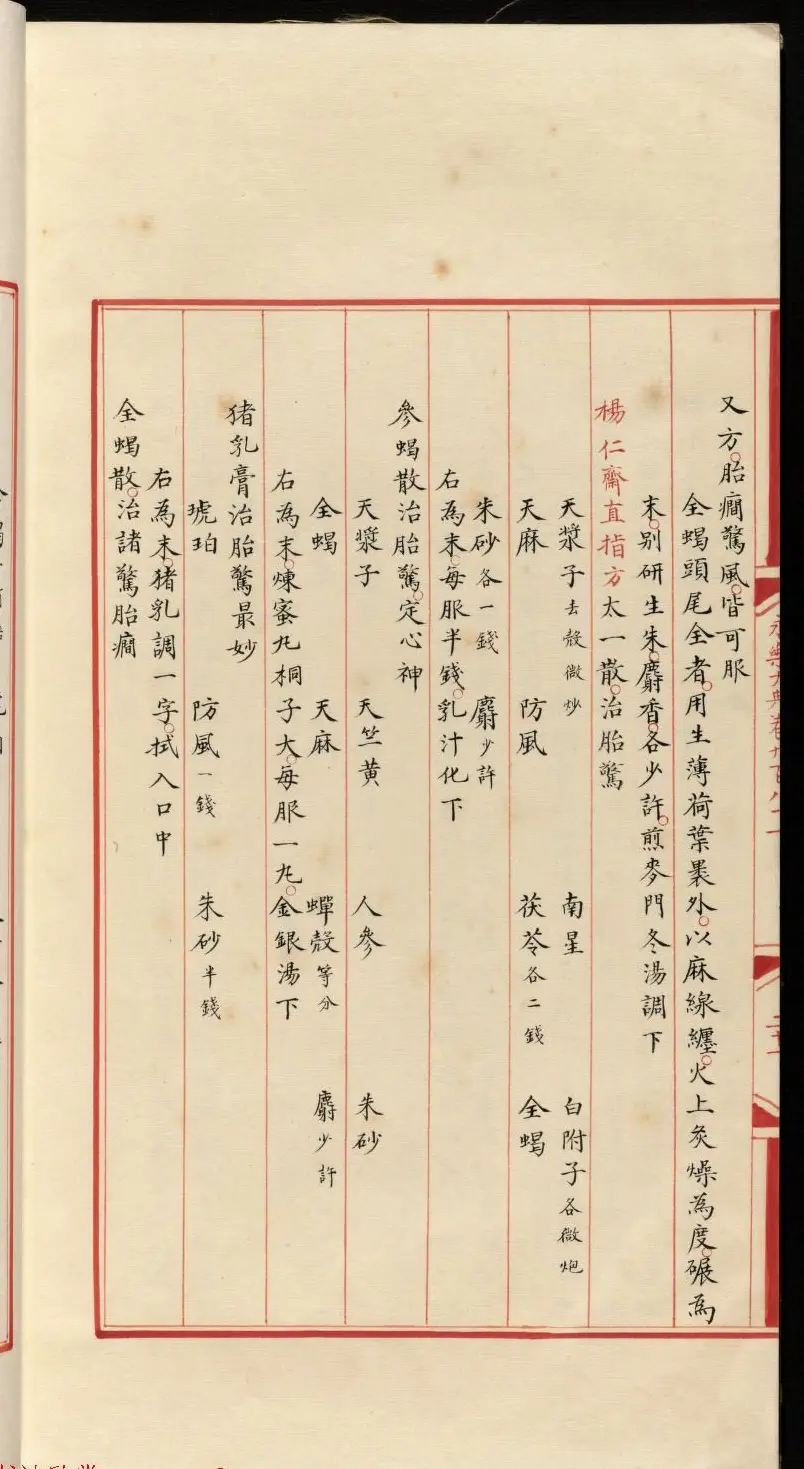 又方。胎癎驚風。皆可服
全蝎頭尾全者。用生薄荷葉褁外。以麻線纏。火上炙燥為度。碾為
末。别研生朱。麝香。各少許。煎麥門冬湯調下
楊仁齋直指方太一散。治胎驚
天漿子去殼微炒 南星 白附子各微炮
天麻 防風 茯苓各二錢 全蝎
朱砂各一錢 麝少許
右為末。每服半錢。乳汁化下
參蝎散治胎驚。定心神
天漿子 天竺黃 人參 朱砂
全蝎 天麻 蟬殼等分 麝少許
右為末。煉蜜丸桐子大。每服一丸。金銀湯下
猪乳膏治胎驚最妙
琥珀 防風一錢 朱砂半錢
右為末。猪乳調一字。拭入口中
全蝎散。治諸驚胎癎
永樂大典卷九百八十一
二十